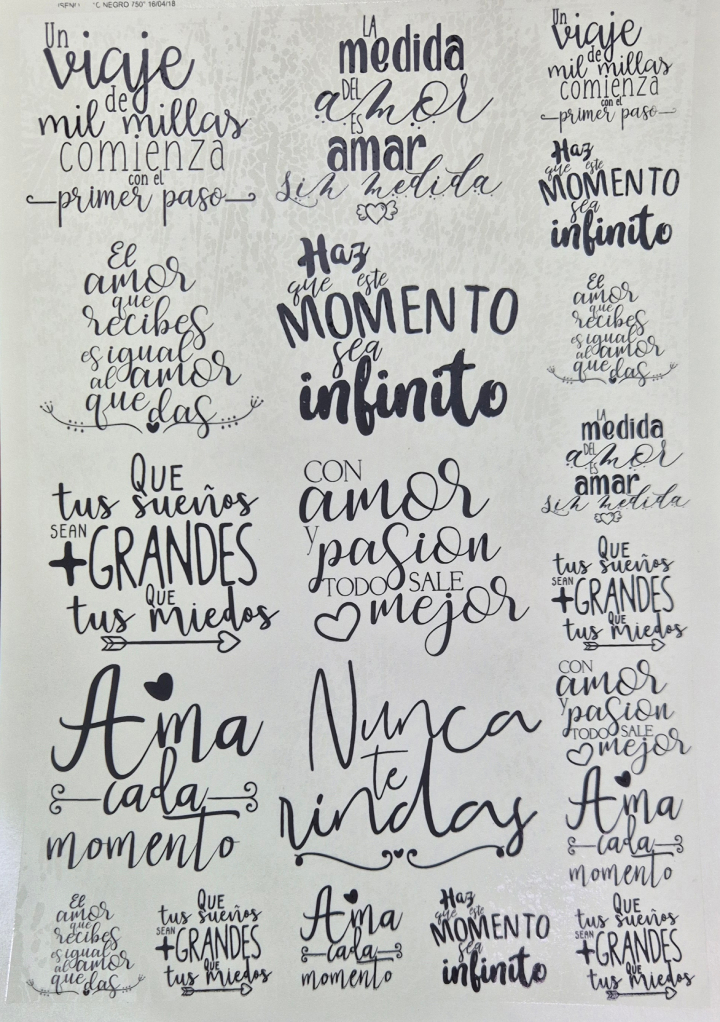 "C NEGRO 750" 16/04/18
Un
viaje
de
mil millas
comienza
con el
primer paso
LA
medida
DEL
amor
ES
amar
sin medida
Un
viaje
de
mil millas
comienza
con el
primer paso
Haz
que este
MOMENTO
sea
infinito
El
amor
que
recibes
es igual
al amor
que das
Haz
que este
MOMENTO
sea
infinito
El
amor
que
recibes
es igual
al amor
que das
LA
medida
DEL
amor
ES
amar
sin medida
QUE
tus sueños
SEAN
+GRANDES
QUE
tus miedos
CON
amor
y pasion
TODO SALE
mejor
QUE
tus sueños
SEAN
+GRANDES
QUE
tus miedos
CON
amor
y pasion
TODO SALE
mejor
Ama
cada
momento
Nunca
te
rindas
Ama
cada
momento
El
amor
que
recibes
es igual
al amor
que das
QUE
tus sueños
SEAN
+GRANDES
QUE
tus miedos
Ama
cada
momento
Haz
que este
MOMENTO
sea
infinito
QUE
tus sueños
SEAN
+GRANDES
QUE
tus miedos